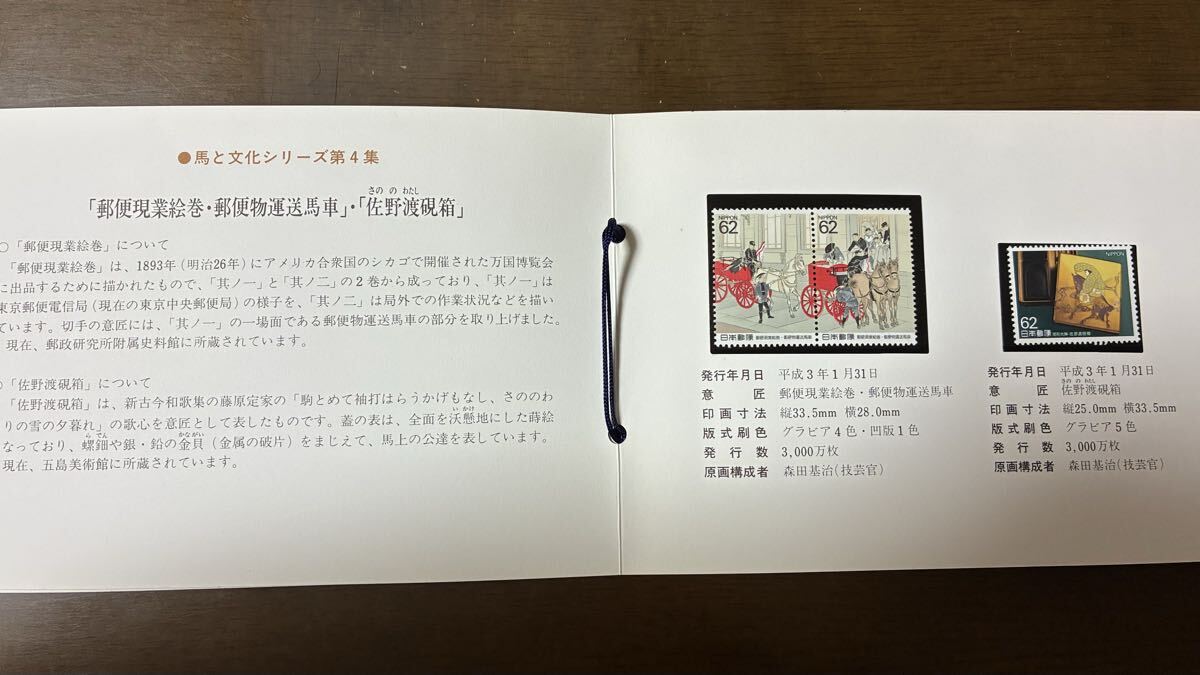 ●馬と文化シリーズ第4集
さの の わたし
「郵便現業絵巻・郵便物運送馬車」・「佐野渡硯箱」
○「郵便現業絵巻」について
「郵便現業絵巻」は、1893年(明治26年)にアメリカ合衆国のシカゴで開催された万国博覧会
に出品するために描かれたもので、「其ノ一」と「其ノ二」の2巻から成っており、「其ノ一」は
東京郵便電信局(現在の東京中央郵便局)の様子を、「其ノ二」は局外での作業状況などを描い
ています。切手の意匠には、「其ノ一」の一場面である郵便物運送馬車の部分を取り上げました。
現在、郵政研究所附属史料館に所蔵されています。
○「佐野渡硯箱」について
「佐野渡硯箱」は、新古今和歌集の藤原定家の「駒とめて袖打はらうかげもなし、さののわ
りの雪の夕暮れ」の歌心を意匠として表したものです。蓋の表は、全面を沃懸地にした蒔絵
いかけ
なっており、螺鈿や銀・鉛の金貝(金属の破片)をまじえて、馬上の公達を表しています。
らでん かながい
現在、五島美術館に所蔵されています。
NIPPON
62
NIPPON
62
日本郵便 郵便現業絵巻・郵便物運送馬車
日本郵便 郵便現業絵巻・郵便物運送馬車
発行年月日 平成3年1月31日
意匠 郵便現業絵巻・郵便物運送馬車
印画寸法 縦33.5mm 横28.0mm
版式刷色 グラビア4色・凹版1色
発行数 3,000万枚
原画構成者 森田基治(技芸官)
NIPPON
62
日本郵便
発行年月日 平成3年1月31日
さの の わたし
意匠 佐野渡硯箱
印画寸法 縦25.0mm 横33.5mm
版式刷色 グラビア5色
発行数 3,000万枚
原画構成者 森田基治(技芸官)